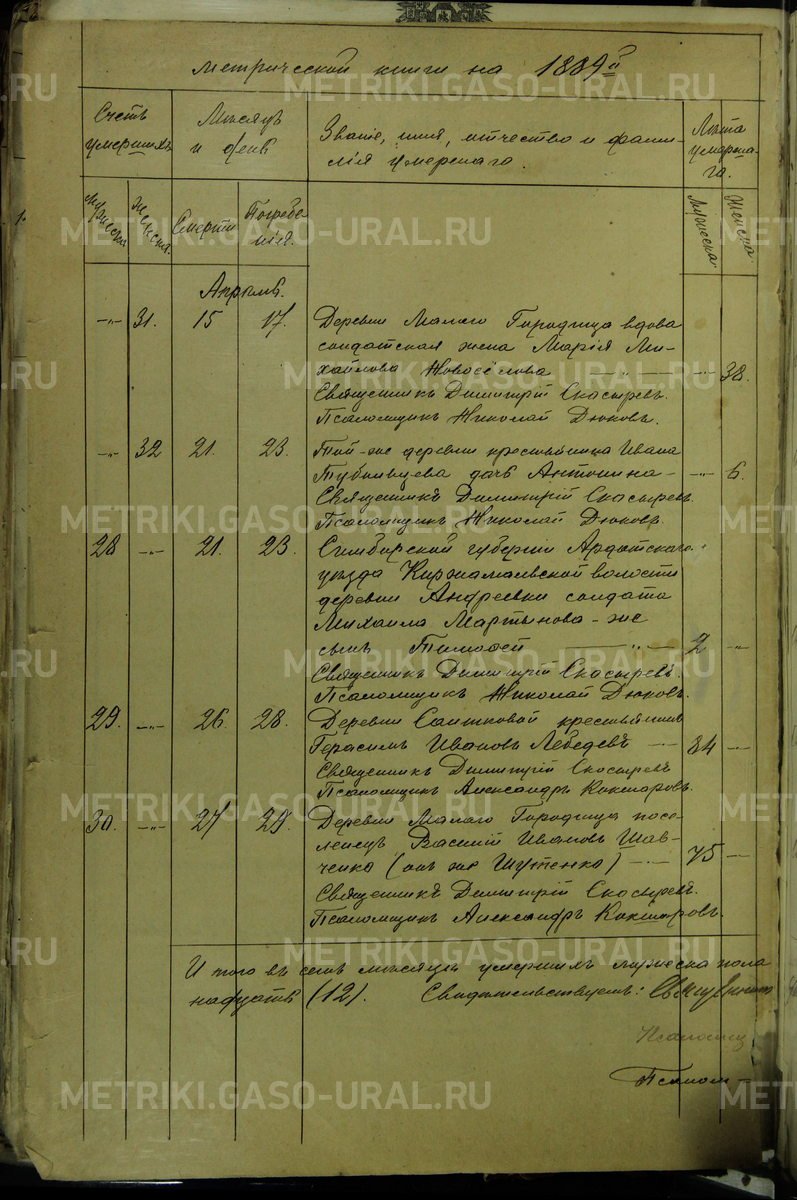 метрической книги на 1889й
Счетъ умершихъ
Мѣсяцъ и день
Званіе, имя, отчество и фами-
лія умершаго.
Лѣта умерша-
го.
Мужеска. Женска. Смерти Погребе-
нія. Мужеска Женска.
Апрѣль.
-"- 31. 15 17. Деревни Малаго Городища вдова
солдатская жена Марія Ми-
хайлова Новосёлова -"- 38.
Священникъ Димитрій Скасыревъ.
Псаломщикъ Николай Дюковъ.
-"- 32 21. 23. Той-же деревни крестьянина Ивана
дочь Антонина -"- 6.
Священникъ Димитрій Скасыревъ
Псаломщикъ Николай Дюковъ
28 -"- 21. 23. Симбирской губерніи Ардатскаго
уѣзда Киржаманской волости
деревни Андреевки солдата
Михаила Мартынова-же
сынъ Тимофей -"- 2 -"-
Священникъ Димитрій Скасыревъ.
Псаломщикъ Николай Дюковъ.
29. -"- 26. 28. Деревни крестьянинъ
Герасимъ Ивановъ Лебедевъ 34 -
Священникъ Димитрій Скасыревъ
Псаломщикъ Александръ Кокшаровъ.
30. -"- 27 29. Деревни Малаго Городища посе-
ленецъ Василій Ивановъ Шав-
ченко (онъ же Шутенко) 75 -
Священникъ Димитрій Скасыревъ.
Псаломщикъ Александръ Кокшаровъ.
И того въ семъ мѣсяцѣ умершихъ мужеска пола
(12). Свидѣтельствуемъ:
Псаломщ
Псалом-
METRIKI.GASO-URAL.RU